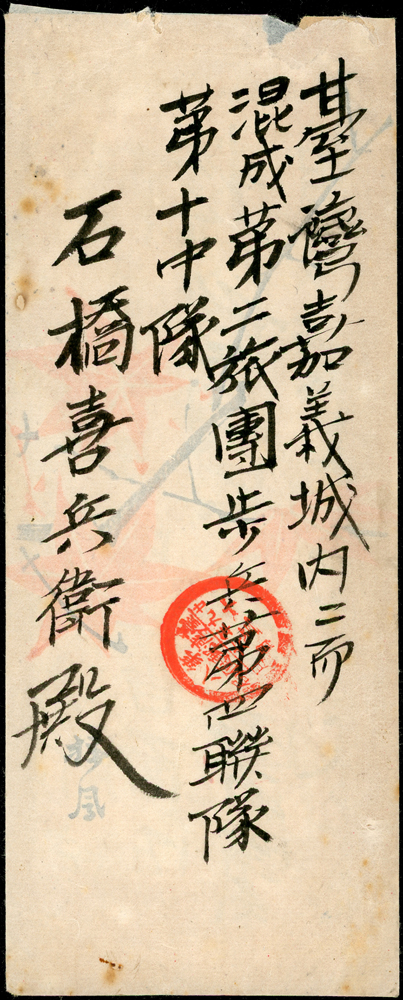 臺灣嘉義城内ニ而
混成第二旅團歩兵第四聯隊
第十中隊
石橋喜兵衛殿